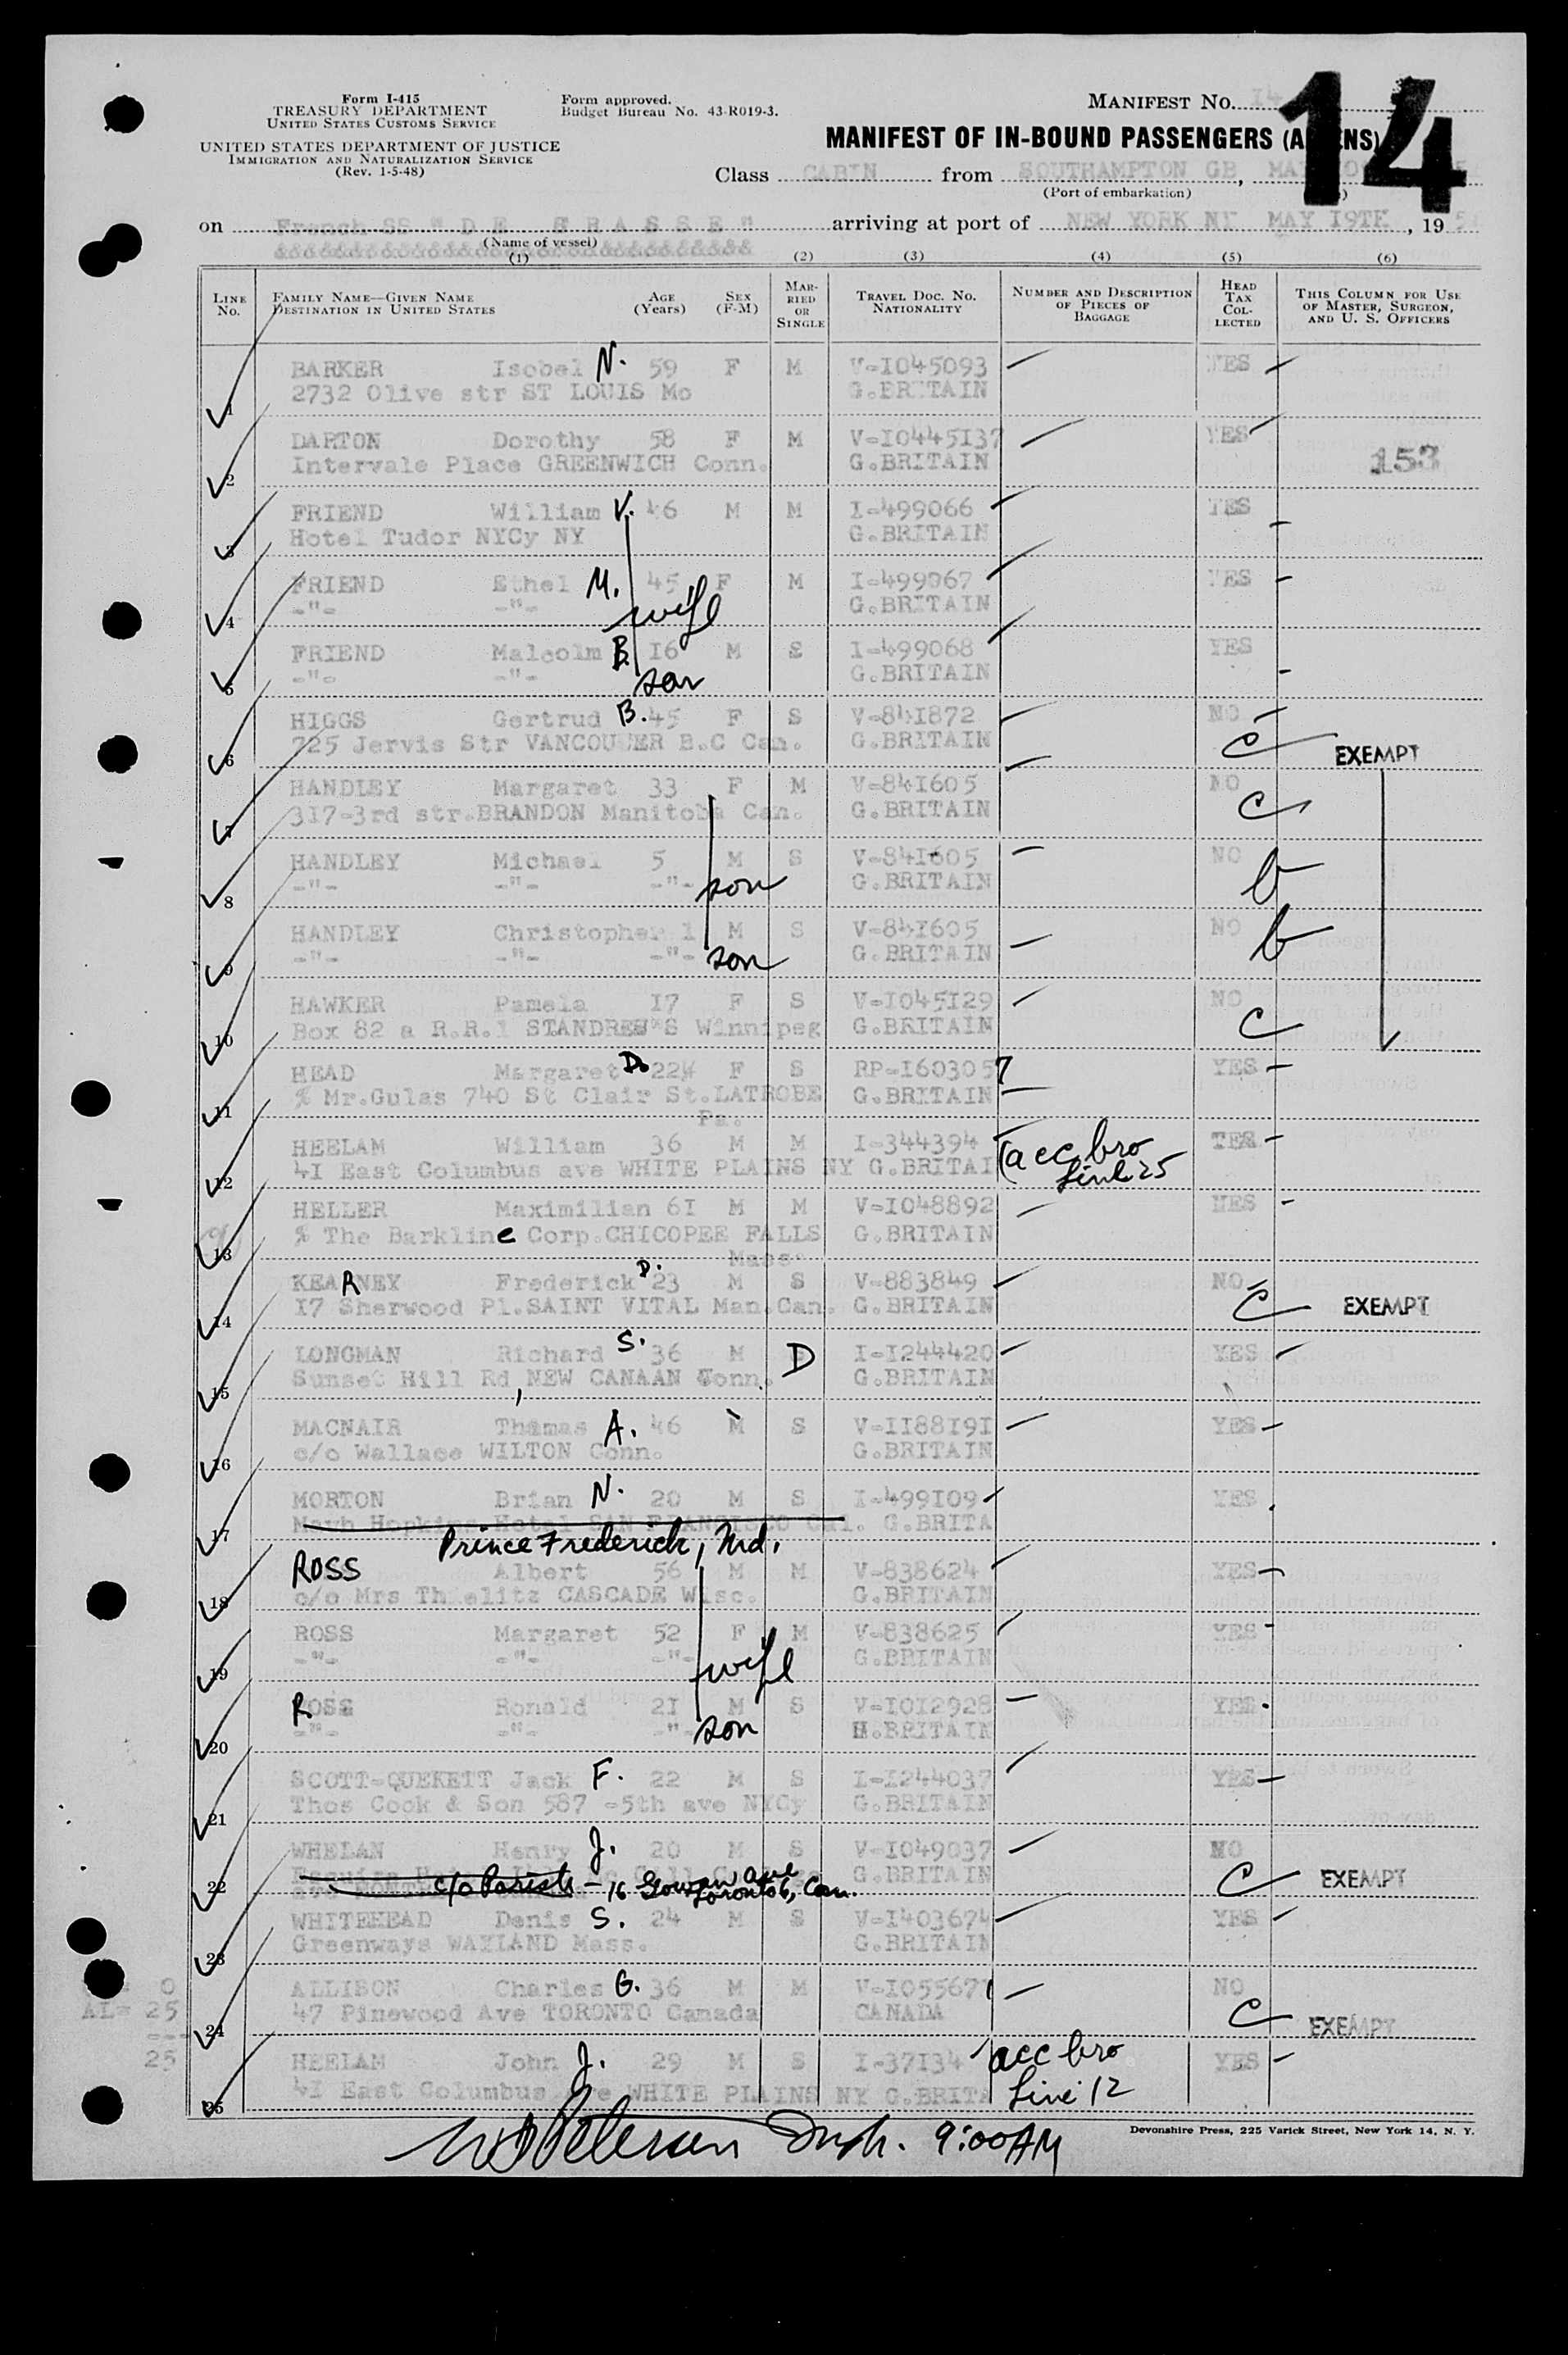 Form I-415
TREASURY DEPARTMENT
UNITED STATES CUSTOMS SERVICE
UNITED STATES DEPARTMENT OF JUSTICE
IMMIGRATION AND NATURALIZATION SERVICE
(Rev. 1-5-48)
Form approved.
Budget Bureau No. 43-R019-3.
MANIFEST NO. 14
MANIFEST OF IN-BOUND PASSENGERS (ALIENS)
Class CABIN from SOUTHAMPTON GB,
(Port of embarkation)
on French SS "DE GRASSE" arriving at port of NEW YORK NY MAY 19TH, 195
(Name of vessel)
(1) (2) (3) (4) (5) (6)
LINE NO. FAMILY NAME—GIVEN NAME DESTINATION IN UNITED STATES AGE (Years) SEX (F-M) MARRIED OR SINGLE TRAVEL DOC. NO. NATIONALITY NUMBER AND DESCRIPTION OF PIECES OF BAGGAGE HEAD TAX COLLECTED THIS COLUMN FOR USE OF MASTER, SURGEON, AND U. S. OFFICERS
BARKER Isobel N. 59 F M V-1045093 YES
1 2732 Olive str ST LOUIS Mo G.BRITAIN
DARTON Dorothy 58 F M V-10445137 YES
2 Intervale Place GREENWICH Conn. G.BRITAIN 153
FRIEND William V. 46 M M I-499066 YES
3 Hotel Tudor NYCy NY G.BRITAIN
FRIEND Ethel M. 45 F M I-499067 YES
4 -"- -"- wife G.BRITAIN
FRIEND Malcolm B. 16 M S I-499068 YES
5 -"- -"- son G.BRITAIN
HIGGS Gertrud B. 45 F S V-841872 NO
6 725 Jervis Str VANCOUVER B.C Can. G.BRITAIN C EXEMPT
HANDLEY Margaret 33 F M V-841605 NO
7 317-3rd str.BRANDON Manitoba Can. G.BRITAIN C
HANDLEY Michael 5 M S V-841605 NO
8 -"- -"- -"- son G.BRITAIN b
HANDLEY Christopher 1 M S V-841605 NO
9 -"- -"- -"- son G.BRITAIN b
HAWKER Pamela 17 F S V-1045129 NO
10 Box 82 a R.R.1 STANDREW"S Winnipeg G.BRITAIN C
HEAD Margaret D. 22 F S RP-1603057 YES
11 % Mr.Gulas 740 St Clair St.LATROBE G.BRITAIN
Pa.
HEELAM William 36 M M I-344394 (acc bro YES
12 41 East Columbus ave WHITE PLAINS NY G.BRITAI Line 25
HELLER Maximilian 61 M M V-1048892 YES
13 % The Barkline Corp.CHICOPEE FALLS G.BRITAIN
Mass.
KEARNEY Frederick D. 23 M S V-883849 NO
14 17 Sherwood Pl.SAINT VITAL Man.Can. G.BRITAIN C EXEMPT
LONGMAN Richard S. 36 M D I-1244420 YES
15 Sunset Hill Rd, NEW CANAAN Conn. G.BRITAIN
MACNAIR Thomas A. 46 M S V-1188191 YES
16 c/o Wallace WILTON Conn. G.BRITAIN
MORTON Brian N. 20 M S I-499109 YES
17 Mark Hopkins Hotel SAN FRANCISCO Cal. G.BRITA
Prince Frederick, Md.
ROSS Albert 56 M M V-838624 YES
18 c/o Mrs CASCADE Wisc. G.BRITAIN
ROSS Margaret 52 F M V-838625 YES
19 -"- -"- -"- wife G.BRITAIN
ROSS Ronald 21 M S V-1012928 YES
20 -"- -"- -"- son H.BRITAIN
SCOTT-QUEKETT Jack F. 22 M S I-1244037 YES
21 Thos Cook & Son 587 -5th ave NYCy G.BRITAIN
WHELAN Henry J. 20 M S V-1049037 NO
G.BRITAIN
22 c/o Parish - 16 Gowan ave Toronto 6, Can. C EXEMPT
WHITEHEAD Denis S. 24 M S V-1403674 YES
23 Greenways WAYLAND Mass. G.BRITAIN
0 ALLISON Charles G. 36 M M V-1055671 NO
AL= 25 24 47 Pinewood Ave TORONTO Canada CANADA C EXEMPT
25 HEELAM John J. 29 M S I-37134 acc bro YES
25 41 East Columbus Ave WHITE PLAINS NY G.BRITA Line 12
Petersen Insp. 9:00AM
Devonshire Press, 225 Varick Street, New York 14, N. Y.